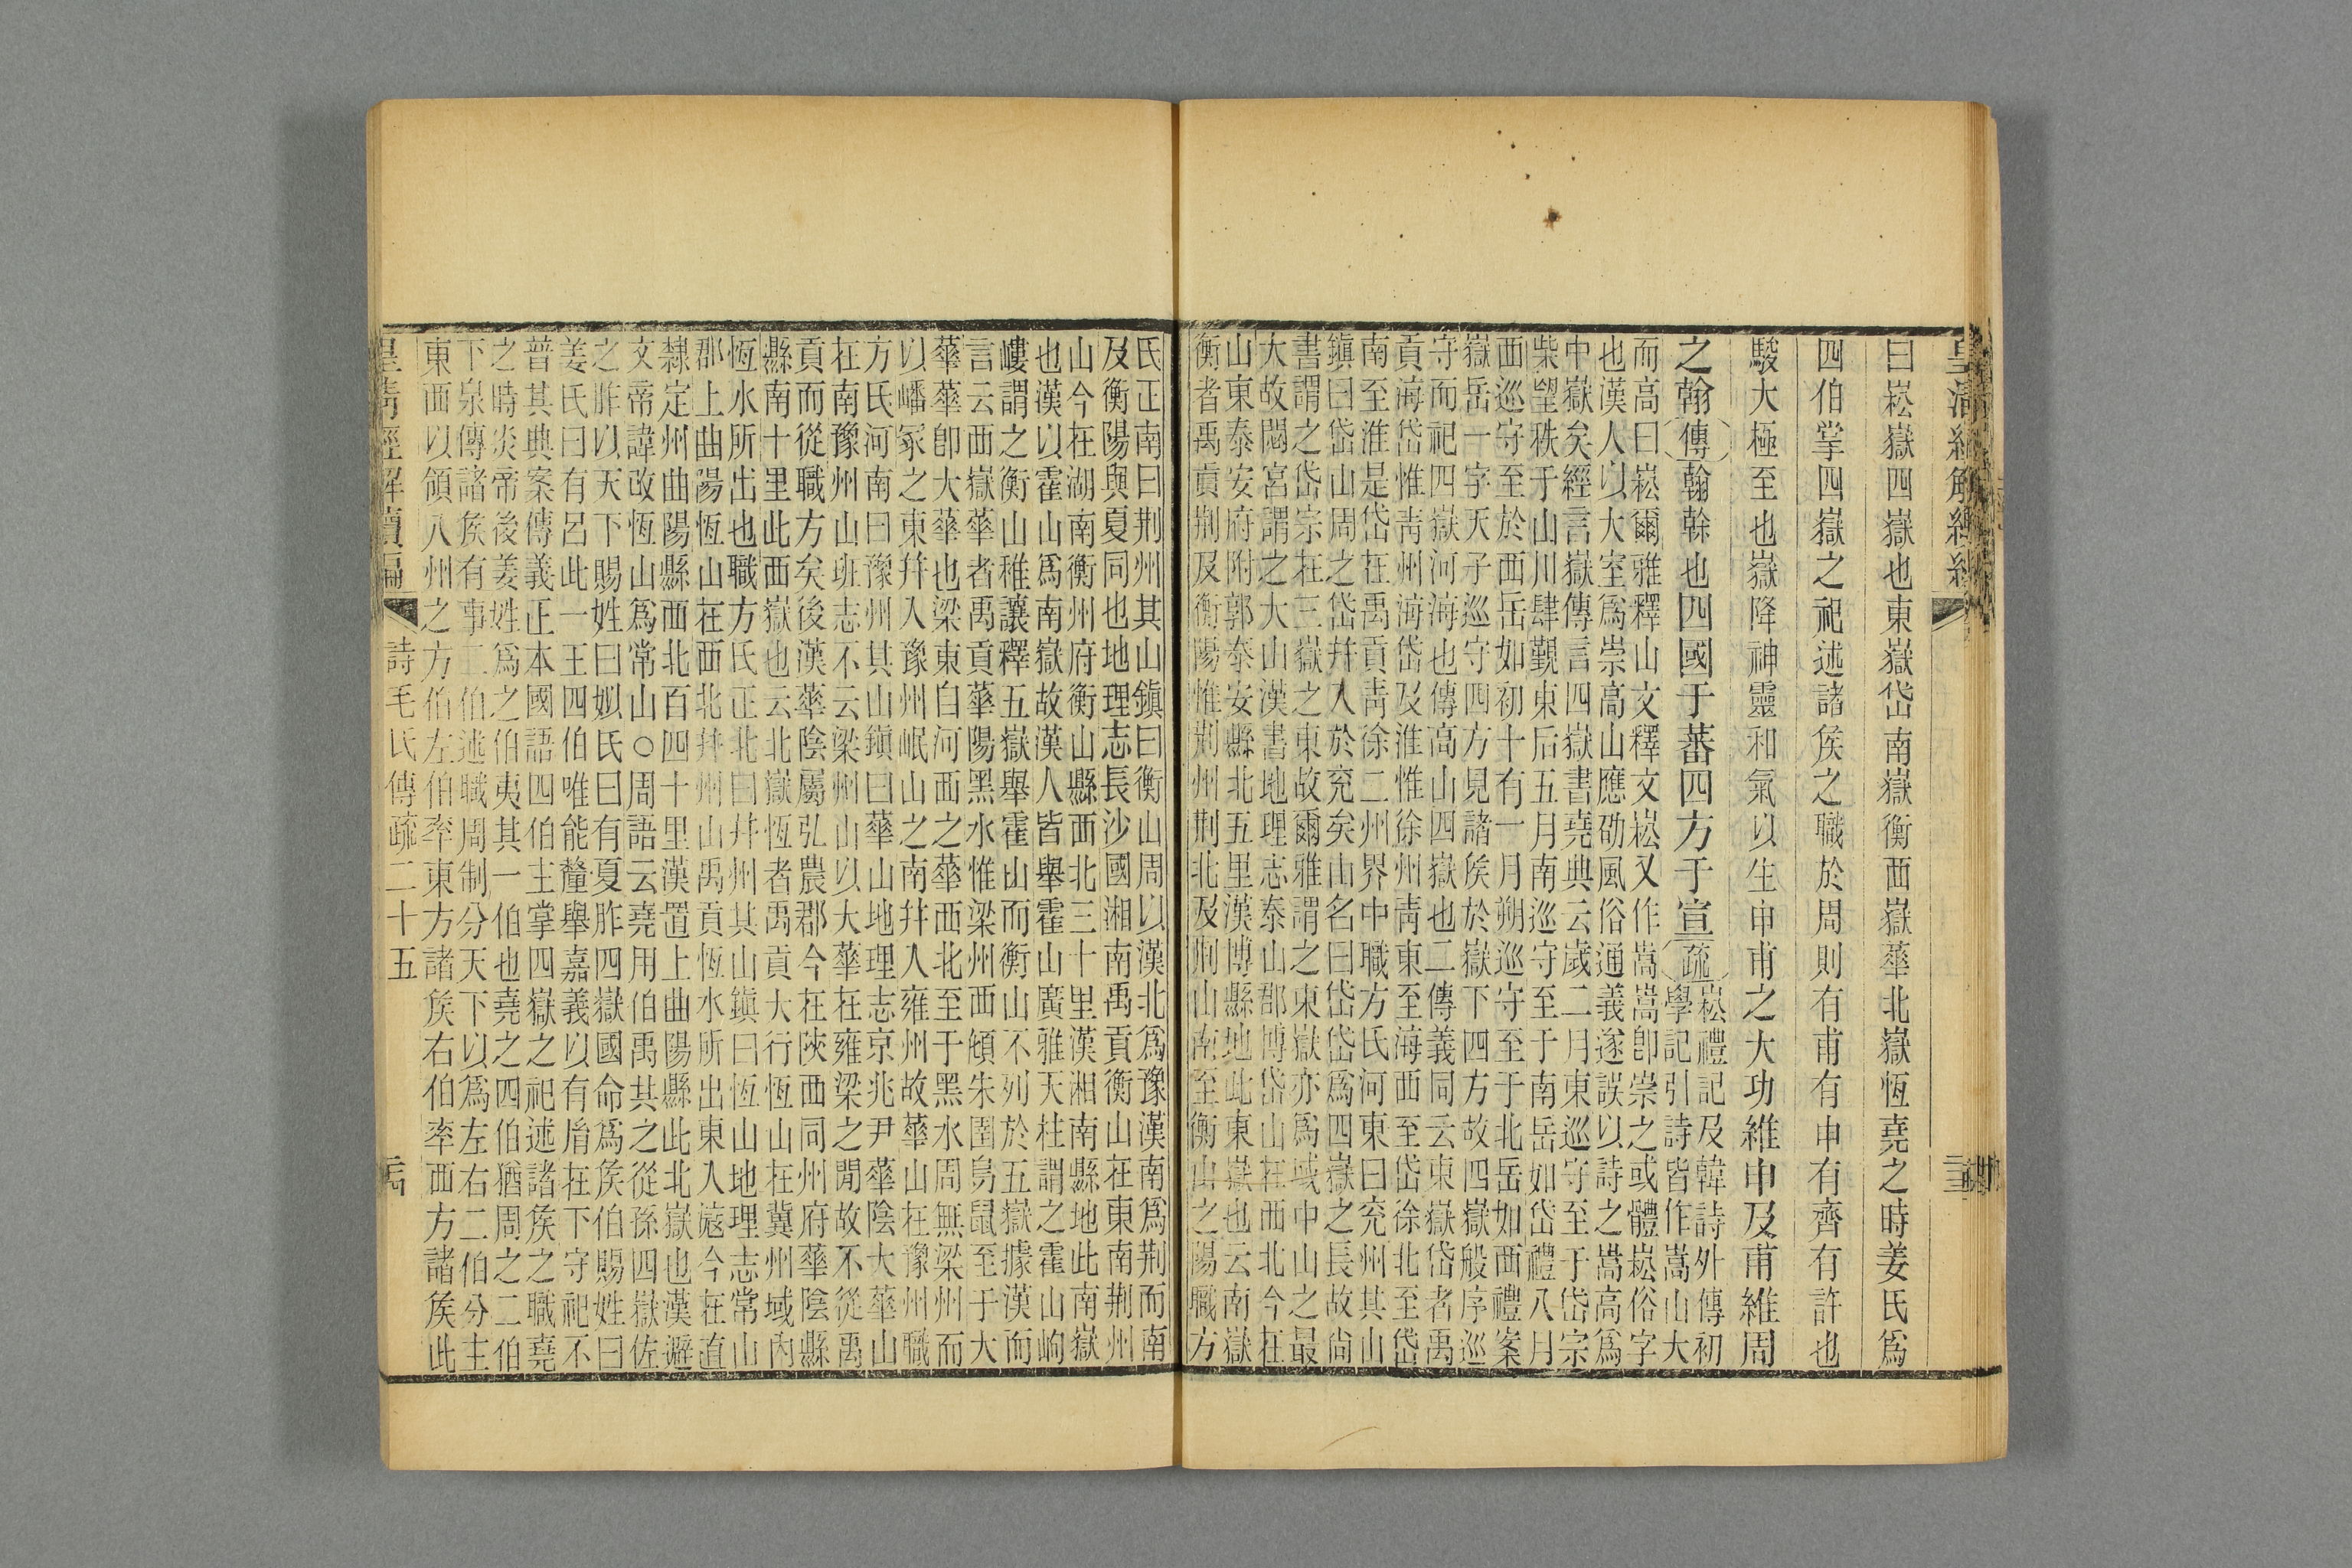 曰崧嶽四嶽也東嶽岱南嶽衡西嶽華北嶽恆堯之時姜氏爲
四伯掌四嶽之祀述諸矦之職於周則有甫有申有齊有許也
駿大極至也嶽降神靈和氣以生申甫之大功維申及甫維周
之翰傳翰榦也四國于蕃四方于宣疏崧禮記及韓詩外傳初
學記引詩皆作嵩山大
而高曰崧爾雅釋山文釋文崧又作嵩嵩卽崇之或體崧俗字
也漢人以大室爲崇高山應劭風俗通義遂誤以詩之嵩高爲
中嶽矣經言嶽傳言四嶽書堯典云歲二月東巡守至于岱宗
柴望秩于山川肆覲東后五月南巡守至于南岳如岱禮八月
西巡守至於西岳如初十有一月朔巡守至于北岳如西禮案
嶽岳一字天子巡守四方見諸矦於嶽下四方故四嶽般序巡
守而祀四嶽河海也傳高山四嶽也二傳義同云東嶽岱者禹
貢海岱惟靑州海岱及淮惟徐州靑東至海西至岱徐北至岱
南至淮是岱在禹貢靑徐二州界中職方氏河東曰兗州其山
鎭曰岱山周之岱幷入於兗矣山名曰岱岱爲四嶽之長故尙
書謂之岱宗在三嶽之東故爾雅謂之東嶽亦爲域中山之最
大故閟宮謂之大山漢書地理志泰山郡博岱山在西北今在
山東泰安府附郭泰安縣北五里漢博縣地此東嶽也云南嶽
衡者禹貢荆及衡陽惟荆州荆北及荆山南至衡山之陽職方
氏正南曰荆州其山鎭曰衡山周以漢北爲豫漢南爲荆而南
及衡陽與夏同也地理志長沙國湘南禹貢衡山在東南荆州
山今在湖南衡州府衡山縣西北三十里漢湘南縣地此南嶽
也漢以霍山爲南嶽故漢人皆舉霍山廣雅天柱謂之霍山岣
嶁謂之衡山稚讓釋五嶽舉霍山而衡山不列於五嶽據漢而
言云西嶽華者禹貢華陽黑水惟梁州西傾朱圉鳥鼠至于大
華華卽大華也梁東自河西之華西北至于黑水周無梁州而
以嶓冢之東幷入豫州岷山之南幷入雍州故華山在豫州職
方氏河南曰豫州其山鎭曰華山地理志京兆尹華陰大華山
在南豫州山班志不云梁州山以大華在雍梁之閒故不從禹
貢而從職方矣後漢華陰屬弘農郡今在陝西同州府華陰縣
縣南十里此西嶽也云北嶽恆者禹貢大行恆山在冀州域內
恆水所出也職方氏正北曰幷州其山鎭曰恆山地理志常山
郡上曲陽恆山在西北幷州山禹貢恆水所出東入滱今在直
隸定州曲陽縣西北百四十里漢置上曲陽縣此北嶽也漢避
文帝諱改恆山爲常山○周語云堯用伯禹其之從孫四嶽佐
之胙以天下賜姓曰姒氏曰有夏胙四嶽國命爲矦伯賜姓曰
姜氏曰有呂此一王四伯唯能釐舉嘉義以有胤在下守祀不
普其典案傳義正本國語四伯主掌四嶽之祀述諸矦之職堯
之時炎帝後姜姓爲之伯夷其一伯也堯之四伯猶周之二伯
下泉傳諸矦有事二伯述職周制分天下以爲左右二伯分主
東西以領八州之方伯左伯率東方諸矦右伯率西方諸矦此
皇淸經解續編 詩毛氏傳疏二十五